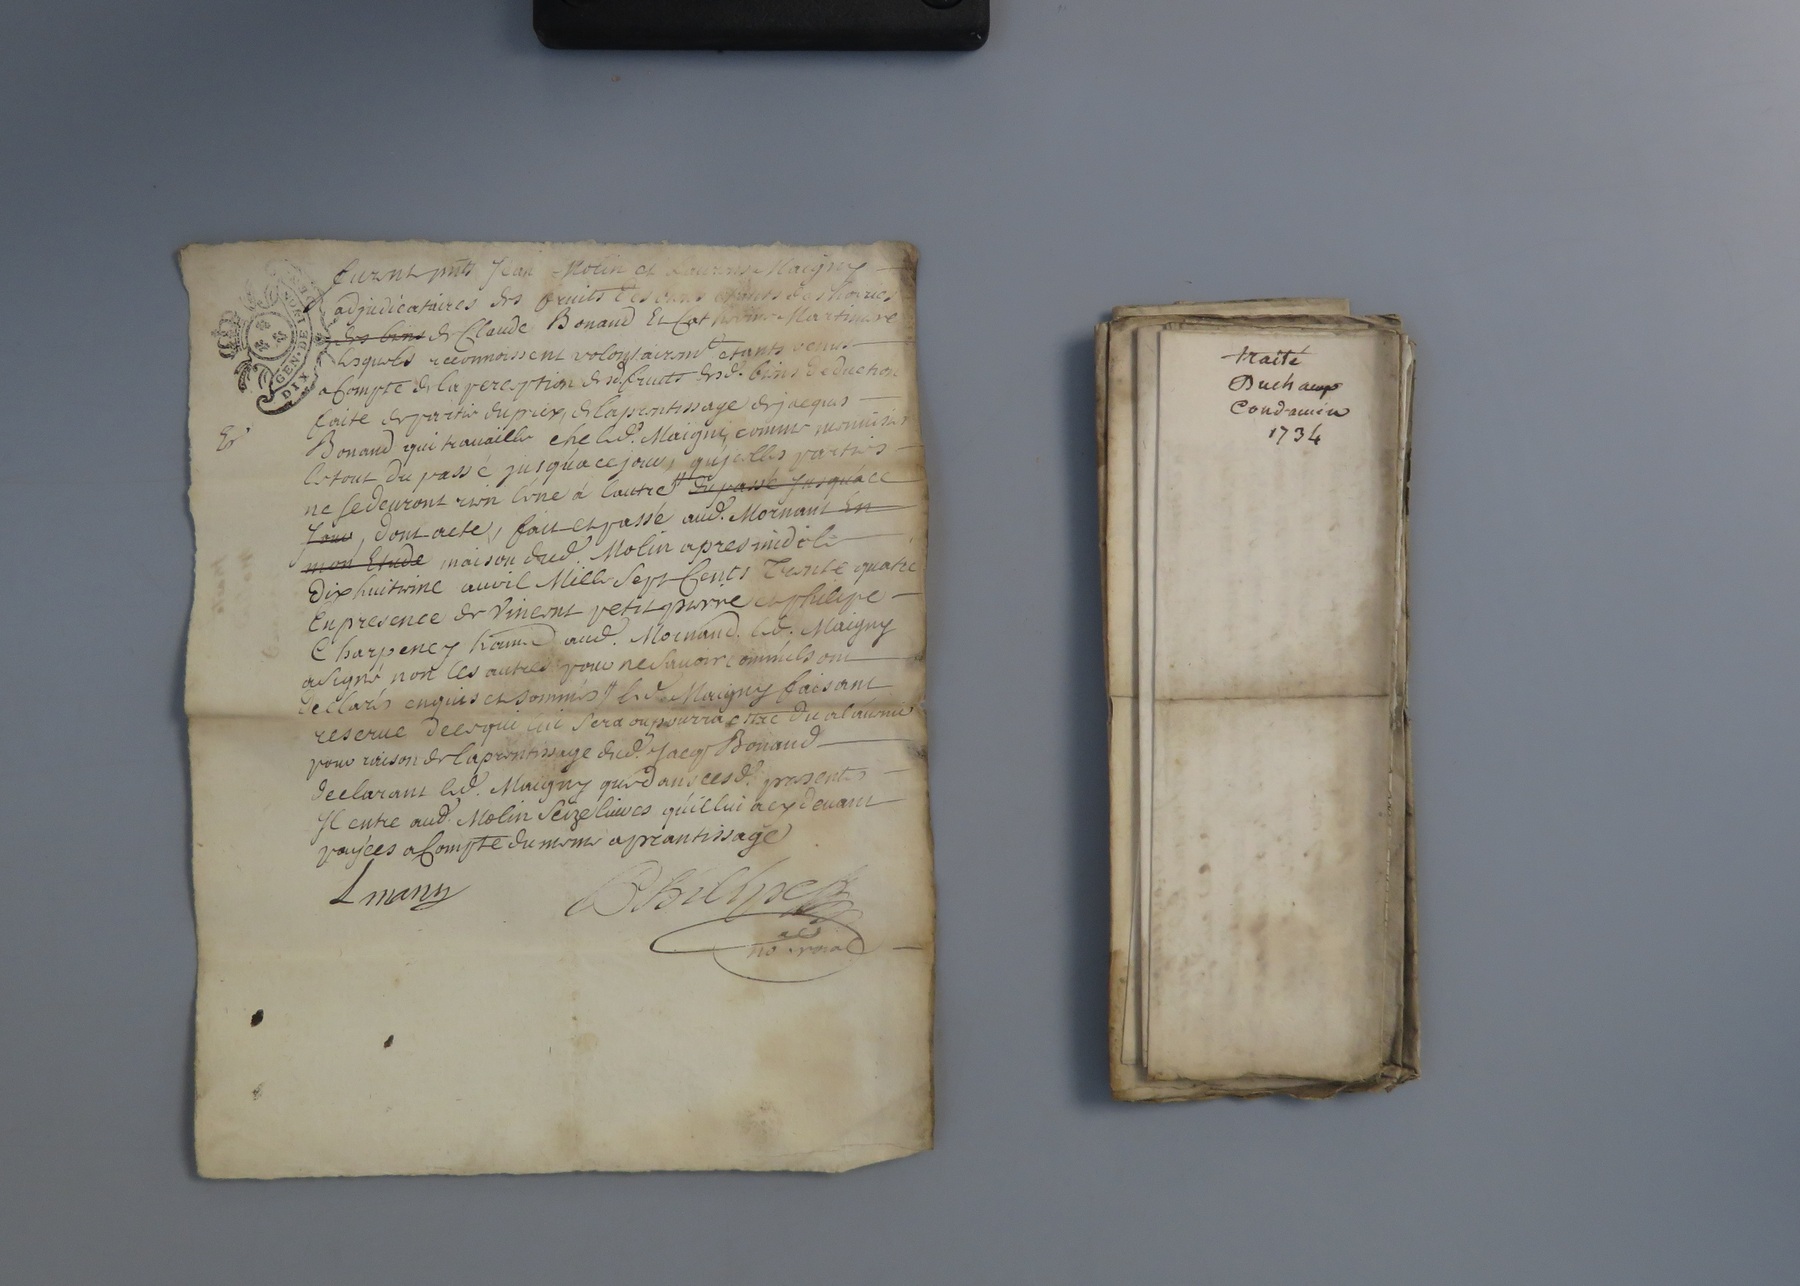 furent pnts Jean Molin et Laurens Maigny
adjudicataires des fruits des
des bins de Claude Bonand Et Catherine Martiniere
lesquels reconnoissent volontairemt etants venus
a Compte de la perception desd. fruits desd. bins deduction
faite de partie du prix de laprentissage de jacques
Bonand qui travaille che led. Maigny comme menuisier
Er
le tout du passé jusqua ce jour, quicelles parties
ne se devront rien l'éne à lautre du passé Jusqua ce
Jour, dont acte, fait et passé aud. Mornant En
mon Etude maison dud. Molin apres midi le
Dix huitieme avvil Mille Sept Cents Trente quatre
En presence de Vincent petit pierre et philipe
Charpeney aud. Mornand. led. Maigny
a signé non les autres pour ne Savoir comme ils ont
declarés enquis et sommés led. Maigny faisant
reserve de ce qui lui Sera ou pourra estre du a lavenir
pour raison de laprentissage dud. Jacq. Bonand
declarant led. Maigny que dans cesd. presentes
Jl entre aud. Molin Seize livres quil lui a cy devant
payées a Compte du meme aprantissage
L many
GEN. DE
DIX
traité
Duchamp
Condamin
1734